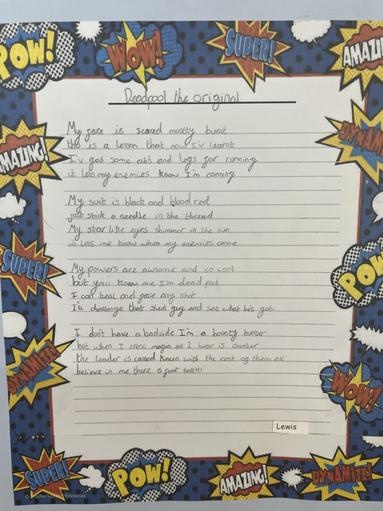 POW!
WOW!
SUPER!
AMAZING!
Deadpool the original
My face is scared mostly burnt
this is a lesson that now I'v learnt
I'v got some abs and legs for running
it lets my enemies know I'm coming
My suit is black and blood red
just stick a needle in the thread
My star like eyes shimmer in the sun
it lets me know when my enemies come
My powers are awsome and so cool
but you know me I'm dead pool
I can heal and face any shot
I'll challenge that shed guy and see what he's got
I don't have a badside I'm a bounty hunter
but when I cross mafia all I hear is
the leader is called with the rest of them all
believe in me there 6 foot tall!!!
Lewis
AMAZING!
SUPER!
DYNAMITE!
DYNAMITE!
POW!
WOW!
SUPER!
POW!
AMAZING!
DYNAMITE!